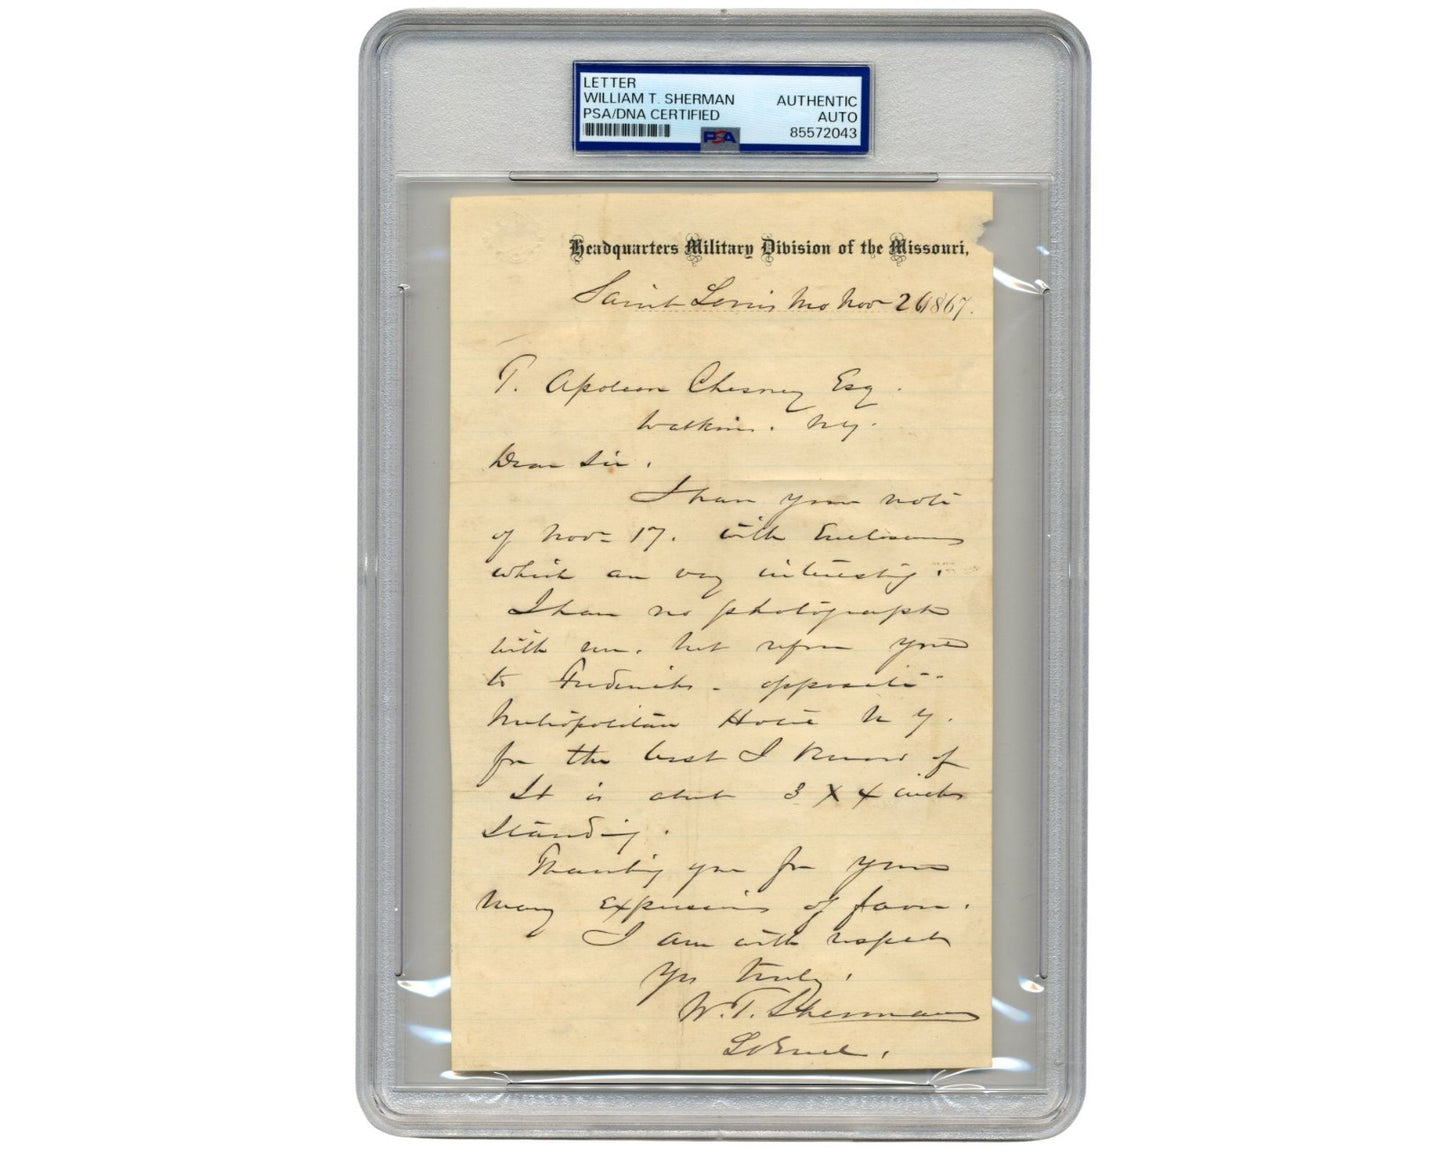 LETTER
WILLIAM T. SHERMAN
PSA/DNA CERTIFIED
AUTHENTIC
AUTO
85572043
PSA
Headquarters Military Division of the Missouri,
Saint Louis Mo Nov 26 1867.
T. Apoleon Chesney Esq.
Watkins. N.Y.
Dear Sir.
I have your note
of Nov 17. with Enclosures
which are very interesting.
I have no photographs
with me. but refer you
to Fredericks - opposite
Metropolitan Hotel N.Y.
for the best I know of
It is about 3 X 4 inches
Standing.
Thanking you for your
many expressions of favor.
I am with respect
Yrs truly,
W. T. Sherman
Lt Genl.